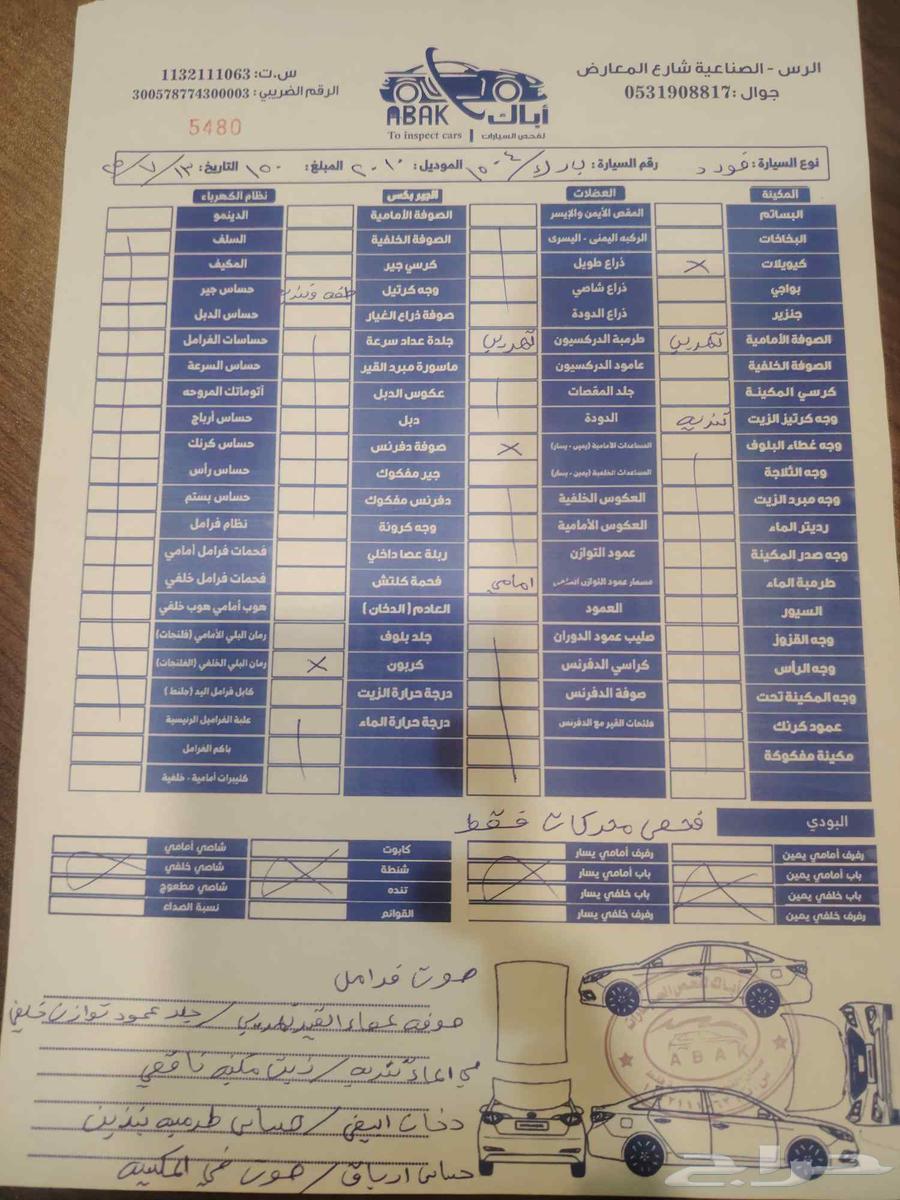 الرس - الصناعية شارع المعارض
جوال :0531908817
ABAK أباك
To inspect cars | لفحص السيارات
س.ت: 1132111063
الرقم الضريبي: 300578774300003
5480
نوع السيارة: فورد رقم السيارة: الموديل: ٢٠١٠ المبلغ: ١٥٠ التاريخ: ١٣/٧/
المكينة العضلات الجير بكس نظام الكهرباء
البساتم المقص الأيمن والإيسر الصوفة الأمامية الدينمو
البخاخات الركبه اليمنى - اليسرى الصوفة الخلفية السلف
كيويلات × ذراع طويل كرسي جير المكيف
بواجي ذراع شاصي وجه كرتيل حساس جير
جنزير ذراع الدودة صوفة ذراع الغيار حساس الدبل
الصوفة الأمامية تهريب طرمبة الدركسيون تهريب جلدة عداد سرعة حساسات الفرامل
الصوفة الخلفية عامود الدركسيون ماسورة مبرد القير حساس السرعة
كرسي المكينة جلد المقصات عكوس الدبل أتوماتك المروحه
وجه كرتيز الزيت تنديه الدودة دبل حساس أرباح
وجه غطاء البلوف المساعدات الأمامية (يمين - يسار) × صوفة دفرنس حساس كرنك
وجه الثلاجة المساعدات الخلفية (يمين - يسار) جير مفكوك حساس رأس
وجه مبرد الزيت العكوس الخلفية دفرنس مفكوك حساس بستم
رديتر الماء العكوس الأمامية وجه كرونة نظام فرامل
وجه صدر المكينة عمود التوازن ربلة عصا داخلي فحمات فرامل أمامي
طرمبة الماء مسمار عمود التوازن امامي فحمة كلتش فحمات فرامل خلفي
السيور العمود العادم ( الدخان ) هوب أمامي هوب خلفي
وجه القزوز صليب عمود الدوران جلد بلوف رمان البلي الأمامي (فلنجات)
وجه الرأس كراسي الدفرنس كربون × رمان البلي الخلفي (الفلنجات)
وجه المكينة تحت صوفة الدفرنس درجة حرارة الزيت كابل فرامل اليد (جلنط )
عمود كرنك فلنجات القير مع الدفرنس درجة حرارة الماء علبة الفراميل الرئيسية
مكينة مفكوكة باكم الفرامل
كليبرات أمامية - خلفية
البودي فحص محركات فقط
رفرف أمامي يمين رفرف أمامي يسار كابوت شاصي أمامي
باب أمامي يمين باب أمامي يسار شنطة شاصي خلفي
باب خلفي يمين باب خلفي يسار تنده شاصي مطعوج
رفرف خلفي يمين رفرف خلفي يسار القوائم نسبة الصداء
صوت فرامل
صوفه عصاء القير تهريب / جلد عمود توازن خلفي
تنديه / زيت مكينه ناقص
دخان ابيض / حساس طرمبه بنزين
حساس ارباق / صوت في المكينه
ABAK
حراج